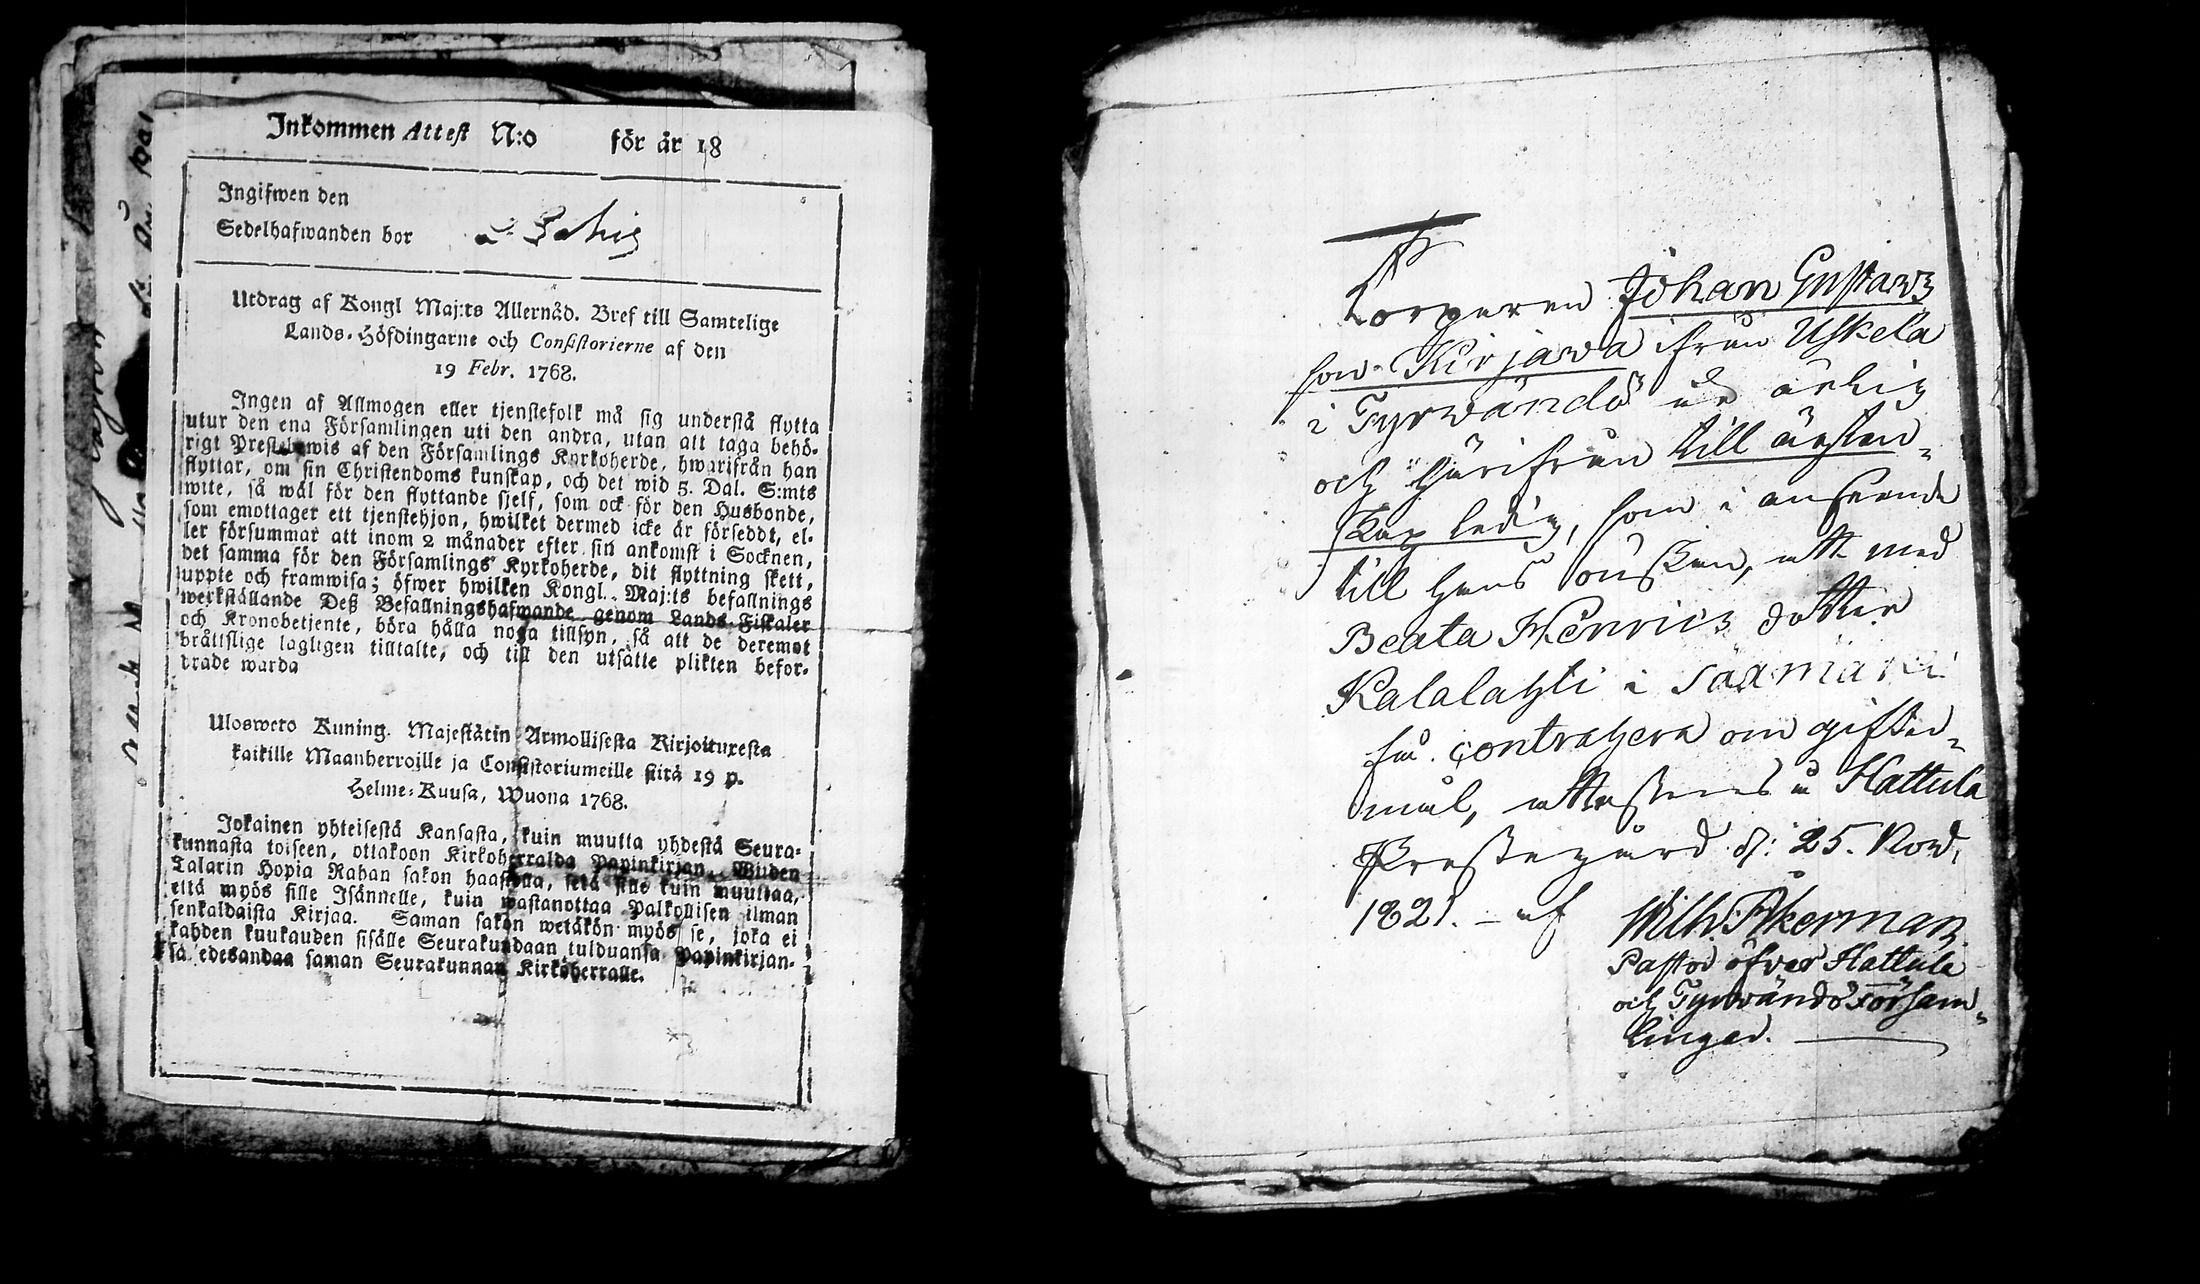 Inkommen Attest N:o för år 18
Ingifwen den
Sedelhafwanden bor
Utdrag af Kongl Maj:ts Allernåd. Bref till Samtelige
Lands-Höfdingarne och Consistorierne af den
19 Febr. 1768.
Ingen af Allmogen eller tjenstefolk må sig understå flytta
utur den ena Församlingen uti den andra, utan att taga behö-
rigt Prestebewis af den Församlings Kyrkoherde, hwarifrån han
flyttar, om sin Christendoms kunskap, och det wid 5. Dal. S:mts
wite, så wäl för den flyttande sjelf, som ock för den Husbonde,
som emottager ett tjenstehjon, hwilket dermed icke är försedt, el-
ler försummar att inom 2 månader efter sin ankomst i Socknen,
det samma för den Församlings Kyrkoherde, dit flyttning skett,
uppte och framwisa; öfwer hwilken Kongl. Maj:ts befallnings
werkställande Deß Befallningshafwande genom Lands-Fiskaler
och Kronobetjente, böra hålla noga tillsyn, så att de deremot
bråttslige lagligen tilltalte, och till den utsätte plikten befor-
drade warda
Uloswero Kuning. Majestätin Armollisesta Kirjoituxesta
kaikille Maanherroille ja Consistoriumeille siitä 19 p.
Helme-Kuusa, Wuona 1768.
Jokainen yhteisestä Kansasta, kuin muutta yhdestä Seura-
kunnasta toiseen, ottakoon Kirkoherralda Papinkirjan, Wiiden
Talarin Hopia Rahan sakon haastolla, sekä sille kuin muuttaa,
että myös sille Isännelle, kuin wastanottaa Palkollisen ilman
senkaldaista Kirjaa. Saman sakon wetäkön myös se, joka ei
kahden kuukauden sisälle Seurakundaan tulduansa Papinkirjan-
sa edesandaa saman Seurakunnan Kirkoherralle.
Torparen Johan Gustavs
son Kirjava ifrån Uskela
i Tyrwändö är ärlig
och härifrån till ägten-
skap ledig, som i anseende
till hans önskan, att med
Beata Henrics dotter
Kalalahti i Sääxmäki
få contrahera om gifter-
mål, attesteras å Hattula
Prestegård d: 25. Nov.
1821. – af Wilh. Åkerman
Pastor öfver Hattula
och Tyrwändö Församl-
lingar.